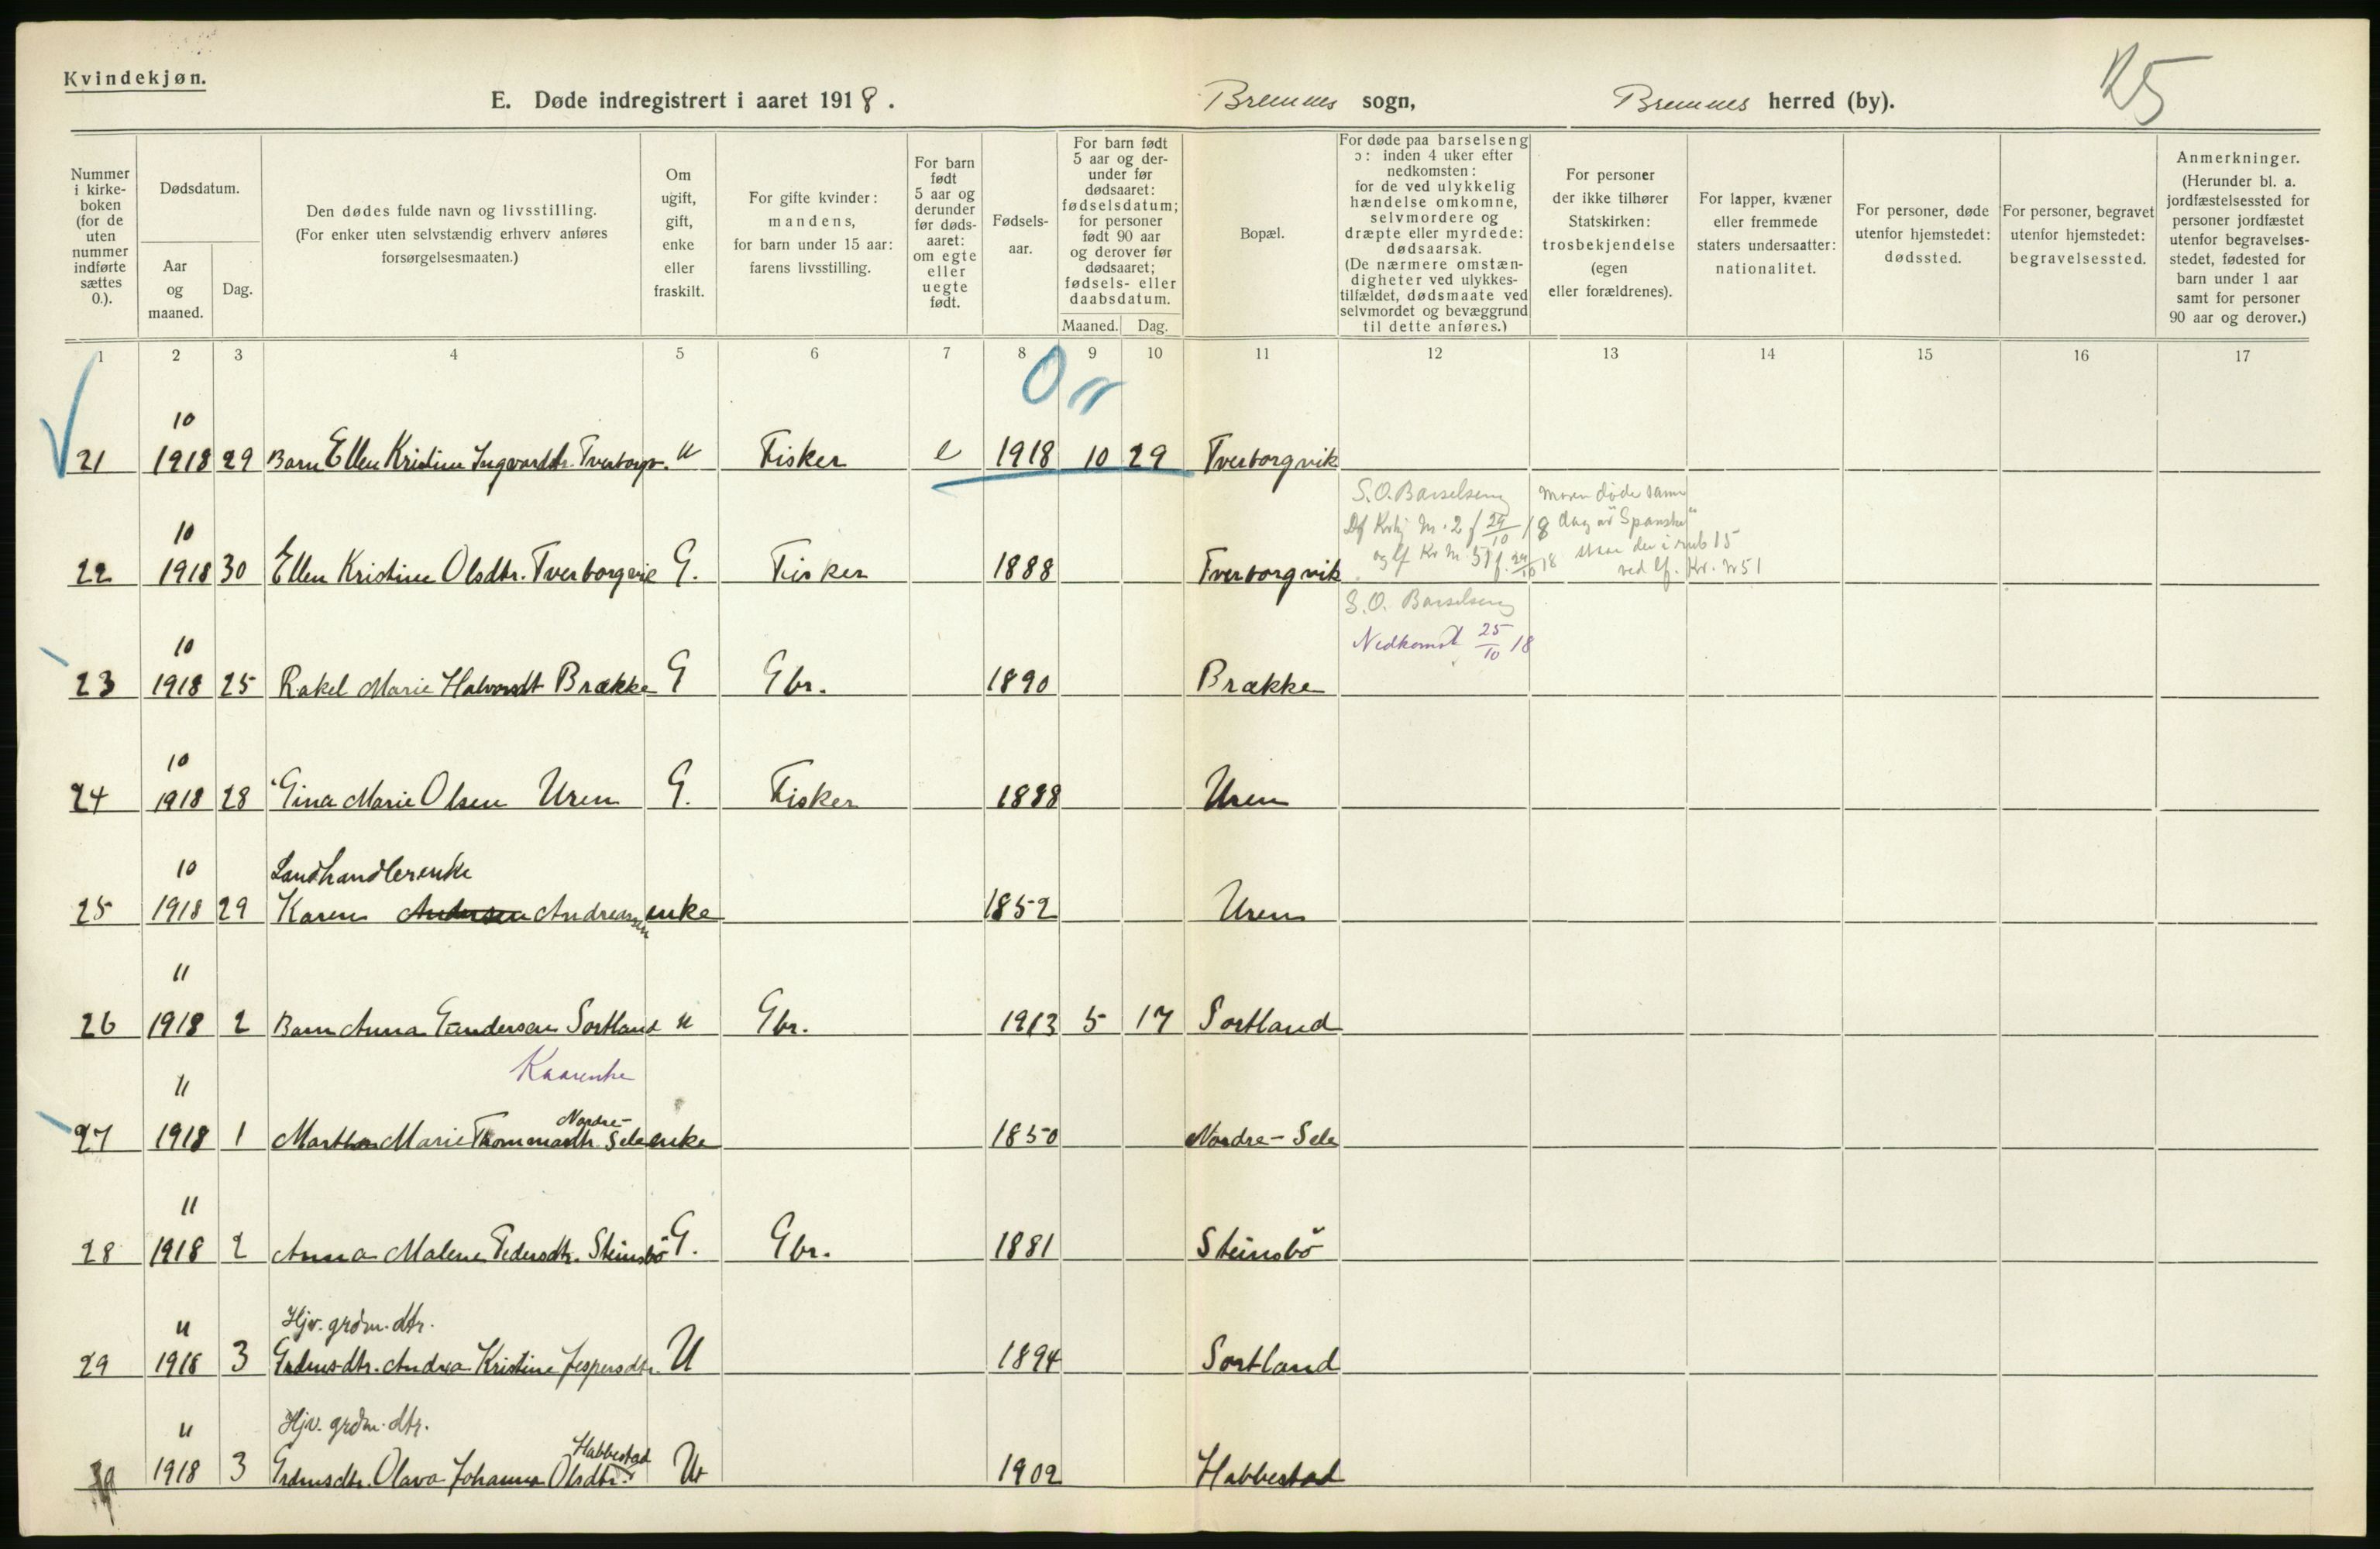 Kvindekjøn.
E. Døde indregistrert i aaret 1918.
Bremnes sogn,
Bremnes herred (by).
25
Nummer i kirke- boken (for de uten nummer indførte sættes 0.).
Dødsdatum.
Aar og maaned.
Dag.
Den dødes fulde navn og livsstilling.
(For enker uten selvstændig erhverv anføres
forsørgelsesmaaten.)
Om ugift, gift, enke eller fraskilt.
For gifte kvinder:
mandens,
for barn under 15 aar:
farens livsstilling.
For barn født 5 aar og derunder før døds- aaret: om egte eller uegte født.
Fødsels- aar.
For barn født 5 aar og der- under før dødsaaret: fødselsdatum; for personer født 90 aar og derover før dødsaaret; fødsels- eller daabsdatum.
Maaned.
Dag.
Bopæl.
For døde paa barselseng
ɔ: inden 4 uker efter
nedkomsten:
for de ved ulykkelig
hændelse omkomne,
selvmordere og
dræpte eller myrdede:
dødsaarsak.
(De nærmere omstæn-
digheter ved ulykkes-
tilfældet, dødsmaate ved
selvmordet og bevæggrund
til dette anføres.)
For personer
der ikke tilhører
Statskirken:
trosbekjendelse
(egen
eller forældrenes).
For lapper, kvæner
eller fremmede
staters undersaatter:
nationalitet.
For personer, døde
utenfor hjemstedet:
dødssted.
For personer, begravet
utenfor hjemstedet:
begravelsessted.
Anmerkninger.
(Herunder bl. a.
jordfæstelsessted for
personer jordfæstet
utenfor begravelses-
stedet, fødested for
barn under 1 aar
samt for personer
90 aar og derover.)
1 2 3 4 5 6 7 8 9 10 11 12 13 14 15 16 17
10
21 1918 29 Barn Ellen Kristine Ingvardtr. Tverborgv. u Fisker e 1918 10 29 Tverborgvik
S.O. Barselseng
moren døde samme
dag av "Spanske"
10
22 1918 30 Ellen Kristine Olsdtr. Tverborgvik G. Fisker 1888 Tverborgvik
S.O. Barselseng
Nedkomst 25/10 18
10
23 1918 25 Rakel Marie Halvorsdt Brække G Gbr. 1890 Brække
10
24 1918 28 Gina Marie Olsen Uren G. Fisker 1888 Uren
10 Landhandlerenke
25 1918 29 Karen Andersen Andreassen enke 1852 Uren
11
26 1918 2 Barn Anna Gundersen Sortland u Gbr. 1913 5 17 Sortland
Kaarenke
11 Nordre-
27 1918 1 Martha Marie Thommasdtr. Sele enke 1850 Nordre-Sele
11
28 1918 2 Anna Malene Pedersdtr. Steinsbö G. Gbr. 1881 Steinsbö
11 Hjv. grdm. dtr.
29 1918 3 Grdmsdtr. Andrea Kristine Jespersdtr. U 1894 Sortland
11 Hjv. grdm. dtr.
Habbestad
1918 3 Grdmsdtr. Olava Johanna Olsdtr. U 1902 Habbestad